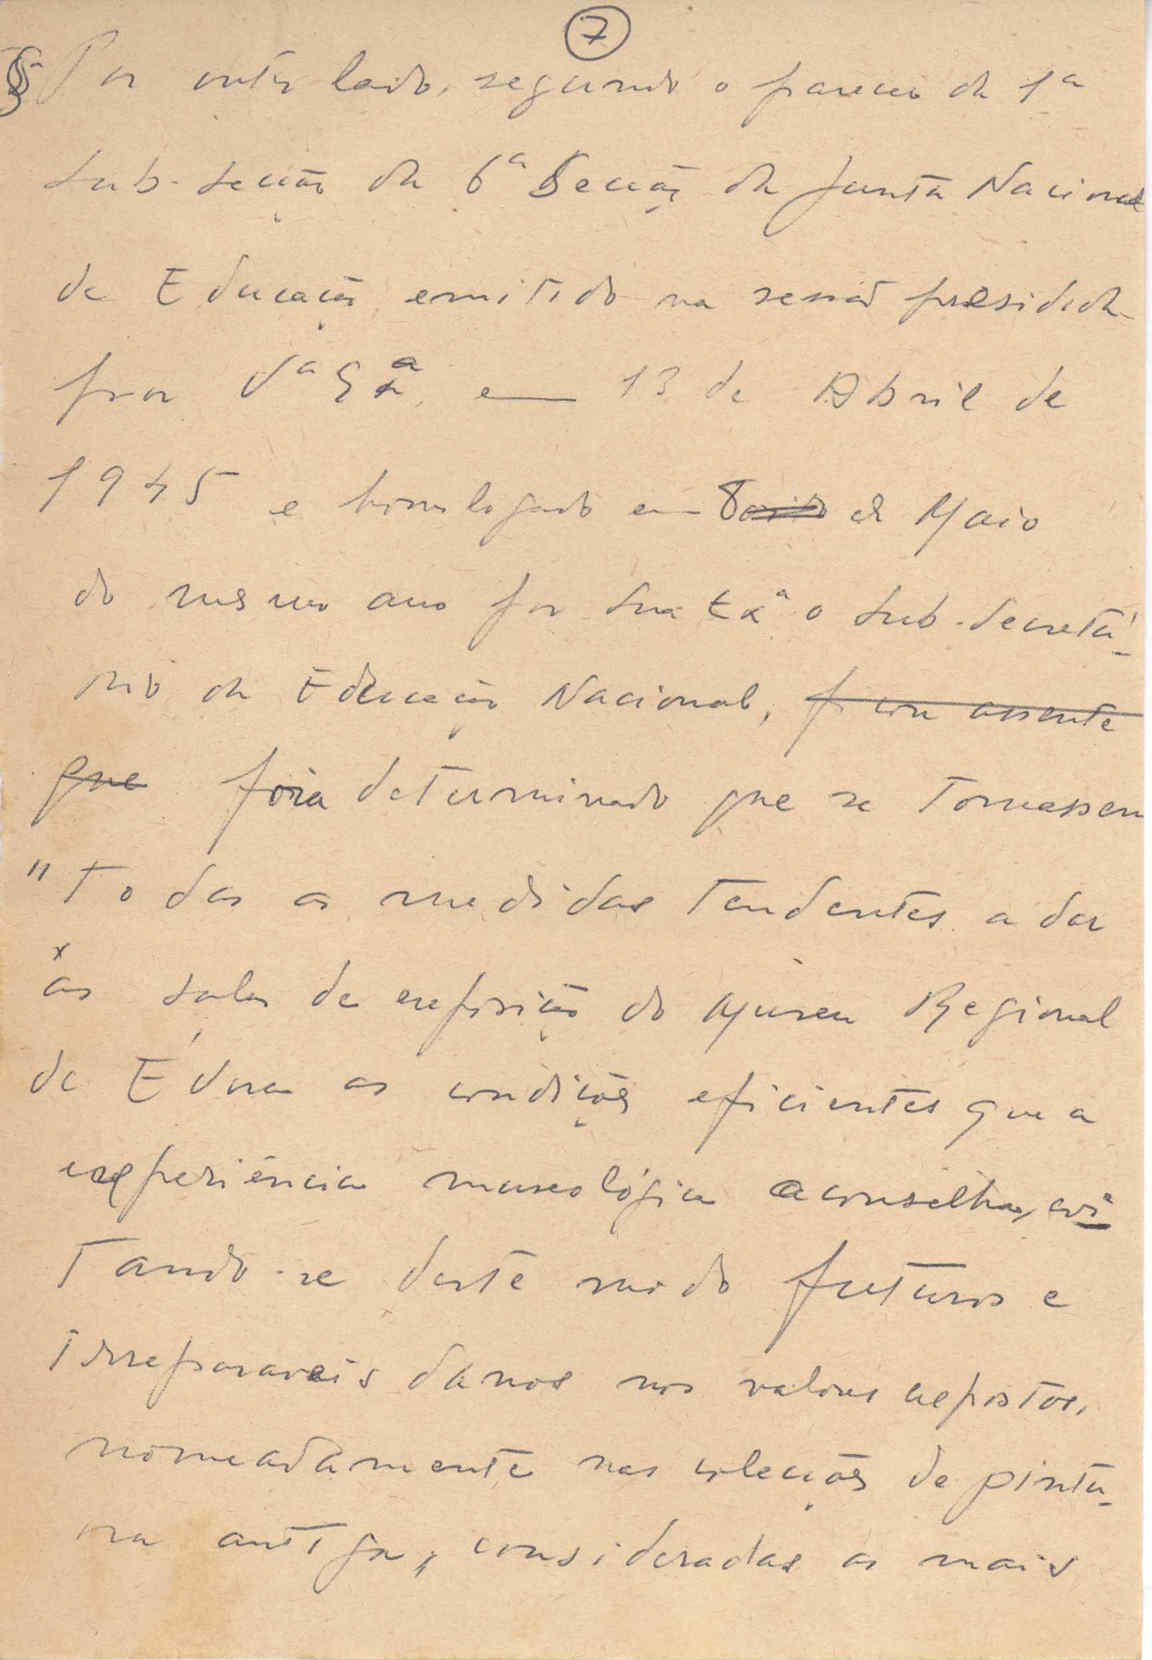 7
§ Por outro lado, segundo o parecer da 1ª
sub-secção da 6ª Secção da Junta Nacional
de Educação, emitido na sessão presidida
por Vª Exª, em 13 de Abril de
1945 e homologado em 8 de Maio
do mesmo ano por Sua Exª o Sub-Secretá-
rio da Educação Nacional, ficou assente
que fôra determinado que se tomassem
"todas as medidas tendentes a dar
às salas de exposição do Museu Regional
de Évora as condições eficientes que a
experiência museológica aconselha, evi-
tando-se deste modo futuros e
irreparaveis danos nos valores expostos,
nomeadamente nas colecções de pintu-
ra antiga, consideradas as mais